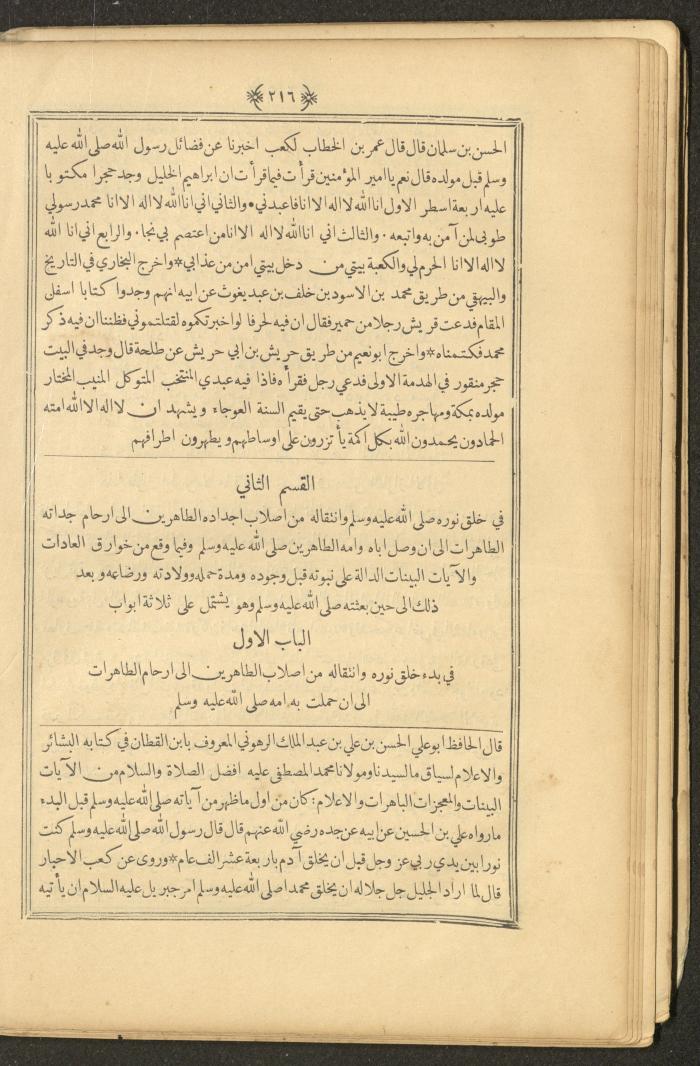 ٢١٦
الحسن بن سلمان قال قال عمر بن الخطاب لكعب اخبرنا عن فضائل رسول الله صلى الله عليه
وسلم قبل مولده قال نعم يا امير المؤمنين قرأت فيما قرأت ان ابراهيم الخليل وجد حجرا مكتوبا
عليه اربعة اسطر الاول انا الله لا اله الا انا فاعبدني * والثاني اني انا الله لا اله الا انا محمد رسولي
طوبى لمن آمن به واتبعه . والثالث اني انا الله لا اله الا انا من اعتصم بي نجا . والرابع اني انا الله
لا اله الا انا الحرم لي والكعبة بيتي من دخل بيتي امن من عذابي * واخرج البخاري في التاريخ
والبيهقي من طريق محمد بن الاسود بن خلف بن عبد يغوث عن ابيه انهم وجدوا كتابا اسفل
المقام فدعت قريش رجلا من حمير فقال ان فيه لحرفا لو اخبرتكموه لقتلتموني فظننا ان فيه ذكر
محمد فكتمناه * واخرج ابو نعيم من طريق حريش بن ابي حريش عن طلحة قال وجد في البيت
حجر منقور في الهدمة الاولى فدعي رجل فقرأه فاذا فيه عبدي المنتخب المتوكل المنيب المختار
مولده بمكة ومهاجره طيبة لا يذهب حتى يقيم السنة العوجاء ويشهد ان لا اله الا الله امته
الحمادون يحمدون الله بكل اكمة يأتزرون على اوساطهم ويطهرون اطرافهم
القسم الثاني
في خلق نوره صلى الله عليه وسلم وانتقاله من اصلاب اجداده الطاهرين الى ارحام جداته
الطاهرات الى ان وصل اباه وامه الطاهرين صلى الله عليه وسلم وفيما وقع من خوارق العادات
والآيات البينات الدالة على نبوته قبل وجوده ومدة حمله وولادته ورضاعه وبعد
ذلك الى حين بعثته صلى الله عليه وسلم وهو يشتمل على ثلاثة ابواب
الباب الاول
في بدء خلق نوره وانتقاله من اصلاب الطاهرين الى ارحام الطاهرات
الى ان حملت به امه صلى الله عليه وسلم
قال الحافظ ابو علي الحسن بن علي بن عبد الملك الرهوني المعروف بابن القطان في كتابه البشائر
والاعلام لسياق ما لسيدنا ومولانا محمد المصطفى عليه افضل الصلاة والسلام من الآيات
البينات والمعجزات الباهرات والاعلام : كان من اول ما ظهر من آياته صلى الله عليه وسلم قبل البدء
ما رواه علي بن الحسين عن ابيه عن جده رضي الله عنهم قال قال رسول الله صلى الله عليه وسلم كنت
نورا بين يدي ربي عز وجل قبل ان يخلق آدم باربعة عشر الف عام * وروى عن كعب الاحبار
قال لما اراد الجليل جل جلاله ان يخلق محمدا صلى الله عليه وسلم امر جبريل عليه السلام ان يأتيه